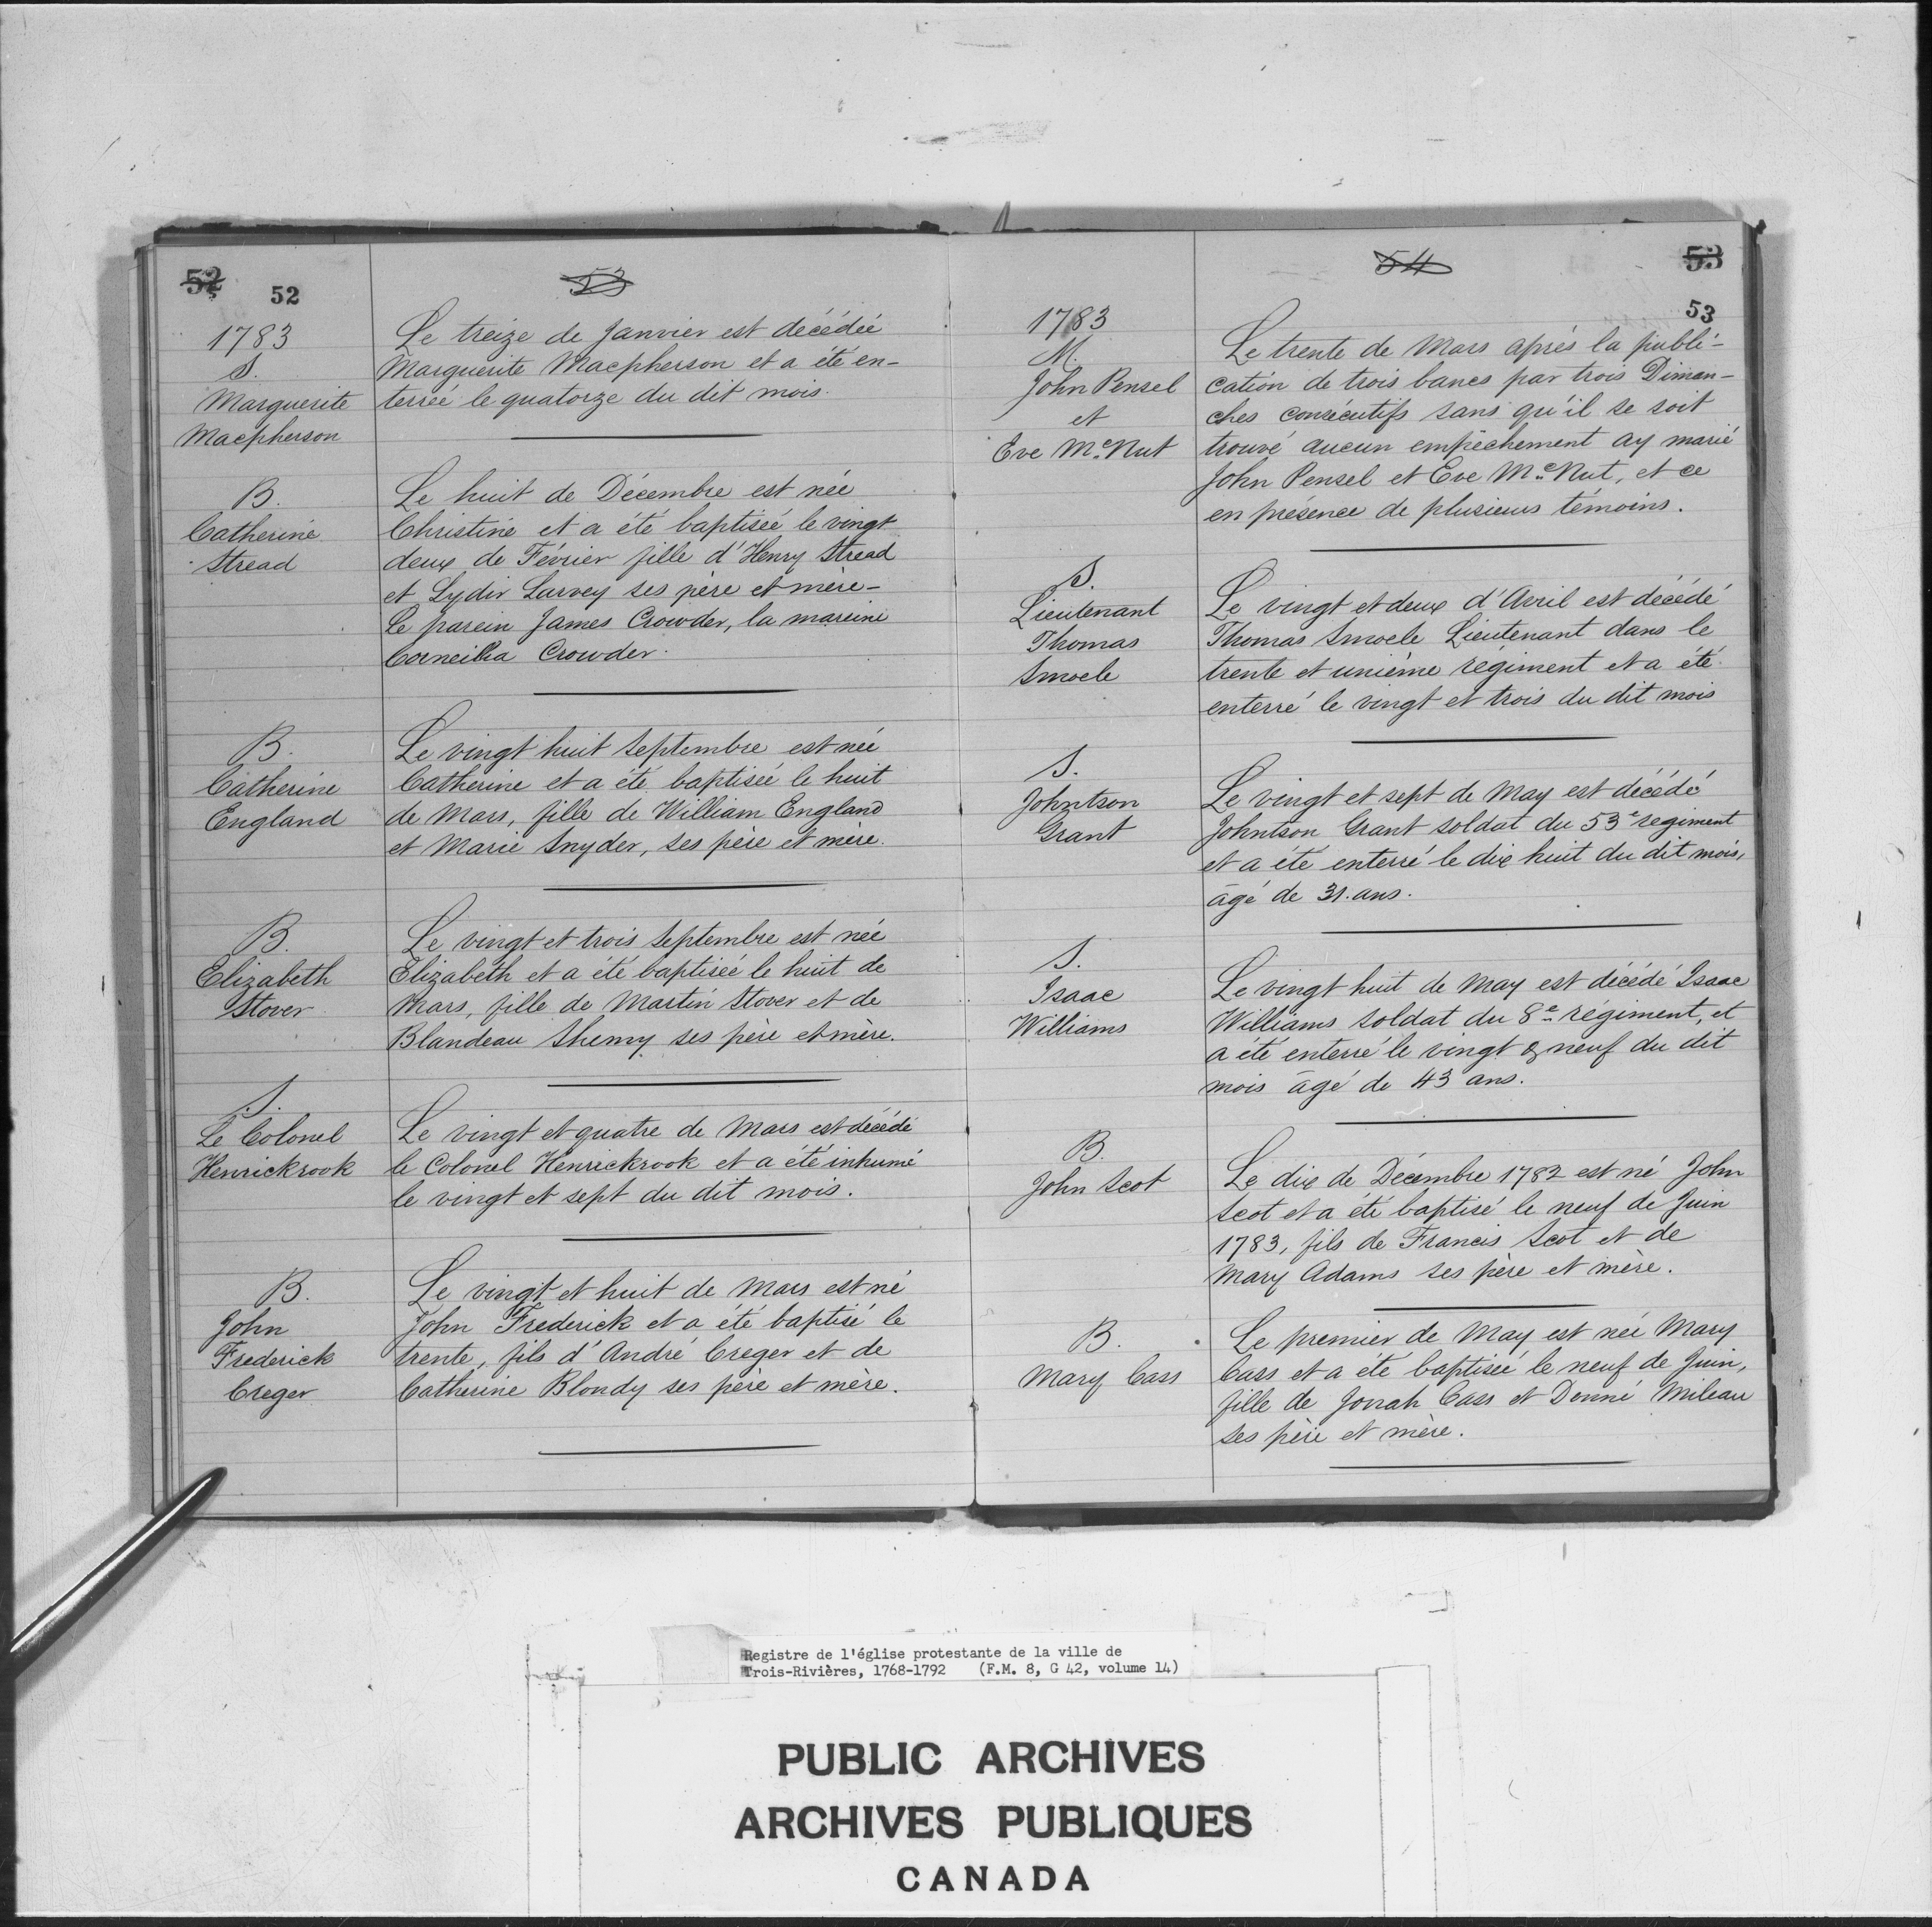 52 52 53
1783
S.
Marguerite
Macpherson
Le treize de Janvier est décédée
Marguerite Macpherson et a été en-
terrée le quatorze du dit mois.
B.
Catherine
Stread
Le huit de Décembre est née
Christine et a été baptisée le vingt
deux de Février fille d'Henry Stread
et Lydir Survey ses père et mère-
Le parein James Crowder, la mareine
Corneilia Crowder.
B.
Catherine
England
Le vingt huit Septembre est née
Catherine et a été baptisée le huit
de Mars, fille de William England
et Marie Snyder, ses père et mère.
B.
Elizabeth
Stover
Le vingt et trois Septembre est née
Elizabeth et a été baptisée le huit de
Mars, fille de Martin Stover et de
Blandeau Shemy ses père et mère.
S.
Le Colonel
Henrickrook
Le vingt et quatre de Mars est décédé
le Colonel Henrickrook et a été inhumé
le vingt et sept du dit mois.
B.
John
Frederick
Creger
Le vingt et huit de Mars est né
John Frederick et a été baptisé le
trente, fils d'André Creger et de
Catherine Blondy ses père et mère.
54 53
53
1783
M.
John Pensel
et
Eve Mc Nut
Le trente de Mars après la publi-
cation de trois bancs par trois Diman-
ches consécutifs sans qu'il se soit
trouvé aucun empêchement ay marié
John Pensel et Eve Mc Nut, et ce
en présence de plusieurs témoins.
S.
Lieutenant
Thomas
Smoele
Le vingt et deux d'Avril est décédé
Thomas Smoele Lieutenant dans le
trente et unième régiment et a été
enterré le vingt et trois du dit mois
S.
Johntson
Grant
Le vingt et sept de May est décédé
Johntson Grant soldat du 53e régiment
et a été enterré le dix huit du dit mois,
âgé de 31. ans.
S.
Isaac
Williams
Le vingt huit de May est décédé Isaac
Williams soldat du 8e régiment, et
a été enterré le vingt & neuf du dit
mois âgé de 43 ans.
B.
John Scot
Le dix de Décembre 1782 est né John
Scot et a été baptisé le neuf de Juin
1783, fils de Francis Scot et de
Mary Adams ses père et mère.
B.
Mary Cass
Le premier de May est née Mary
Cass et a été baptisée le neuf de Juin,
fille de Jonah Cass et Donné Mileau
ses père et mère.
Registre de l'église protestante de la ville de
Trois-Rivières, 1768-1792 (F.M. 8, G 42, volume 14)
PUBLIC ARCHIVES
ARCHIVES PUBLIQUES
CANADA